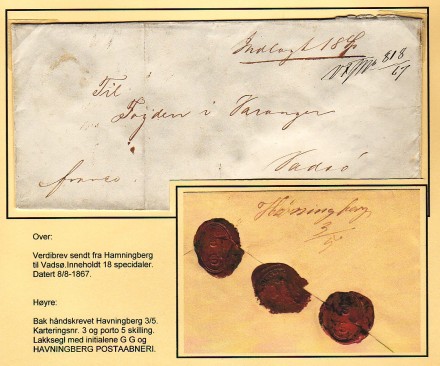 Indlagt 18
818
67
Til
Fogden i Varanger
Vadsö
franco.
Havningberg
3/5
Over:
Verdibrev sendt fra Hamningberg
til Vadsø.Inneholdt 18 specidaler.
Datert 8/8-1867.
Høyre:
Bak håndskrevet Havningberg 3/5.
Karteringsnr. 3 og porto 5 skilling.
Lakksegl med initialene G G og
HAVNINGBERG POSTAABNERI.